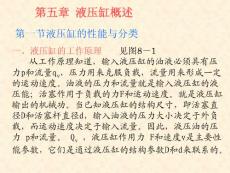 第五章 液压缸概述
第一节液压缸的性能与分类
一．液压缸的工作原理 见图8—1
从工作原理知道，输入液压缸的油液必须具有压
力p和流量q。压力用来克服负载，流量用来形成一定
的运动速度。油液的压力和流量就是输入给液压缸的液
压能；活塞作用于负载的力F和运动速度v，就是液压缸
输出的机械能。当液压缸的结构尺寸，即活塞直
径D和活塞杆直径d，输入油液的压力大小决定于外负
载，而运动速度决定于输入流量。因此，液压油的压
力p、流量 Q。、液压缸作用力 F和速度v是主要性
能参数，它们是通过液压缸的结构参数D和d来联系的。